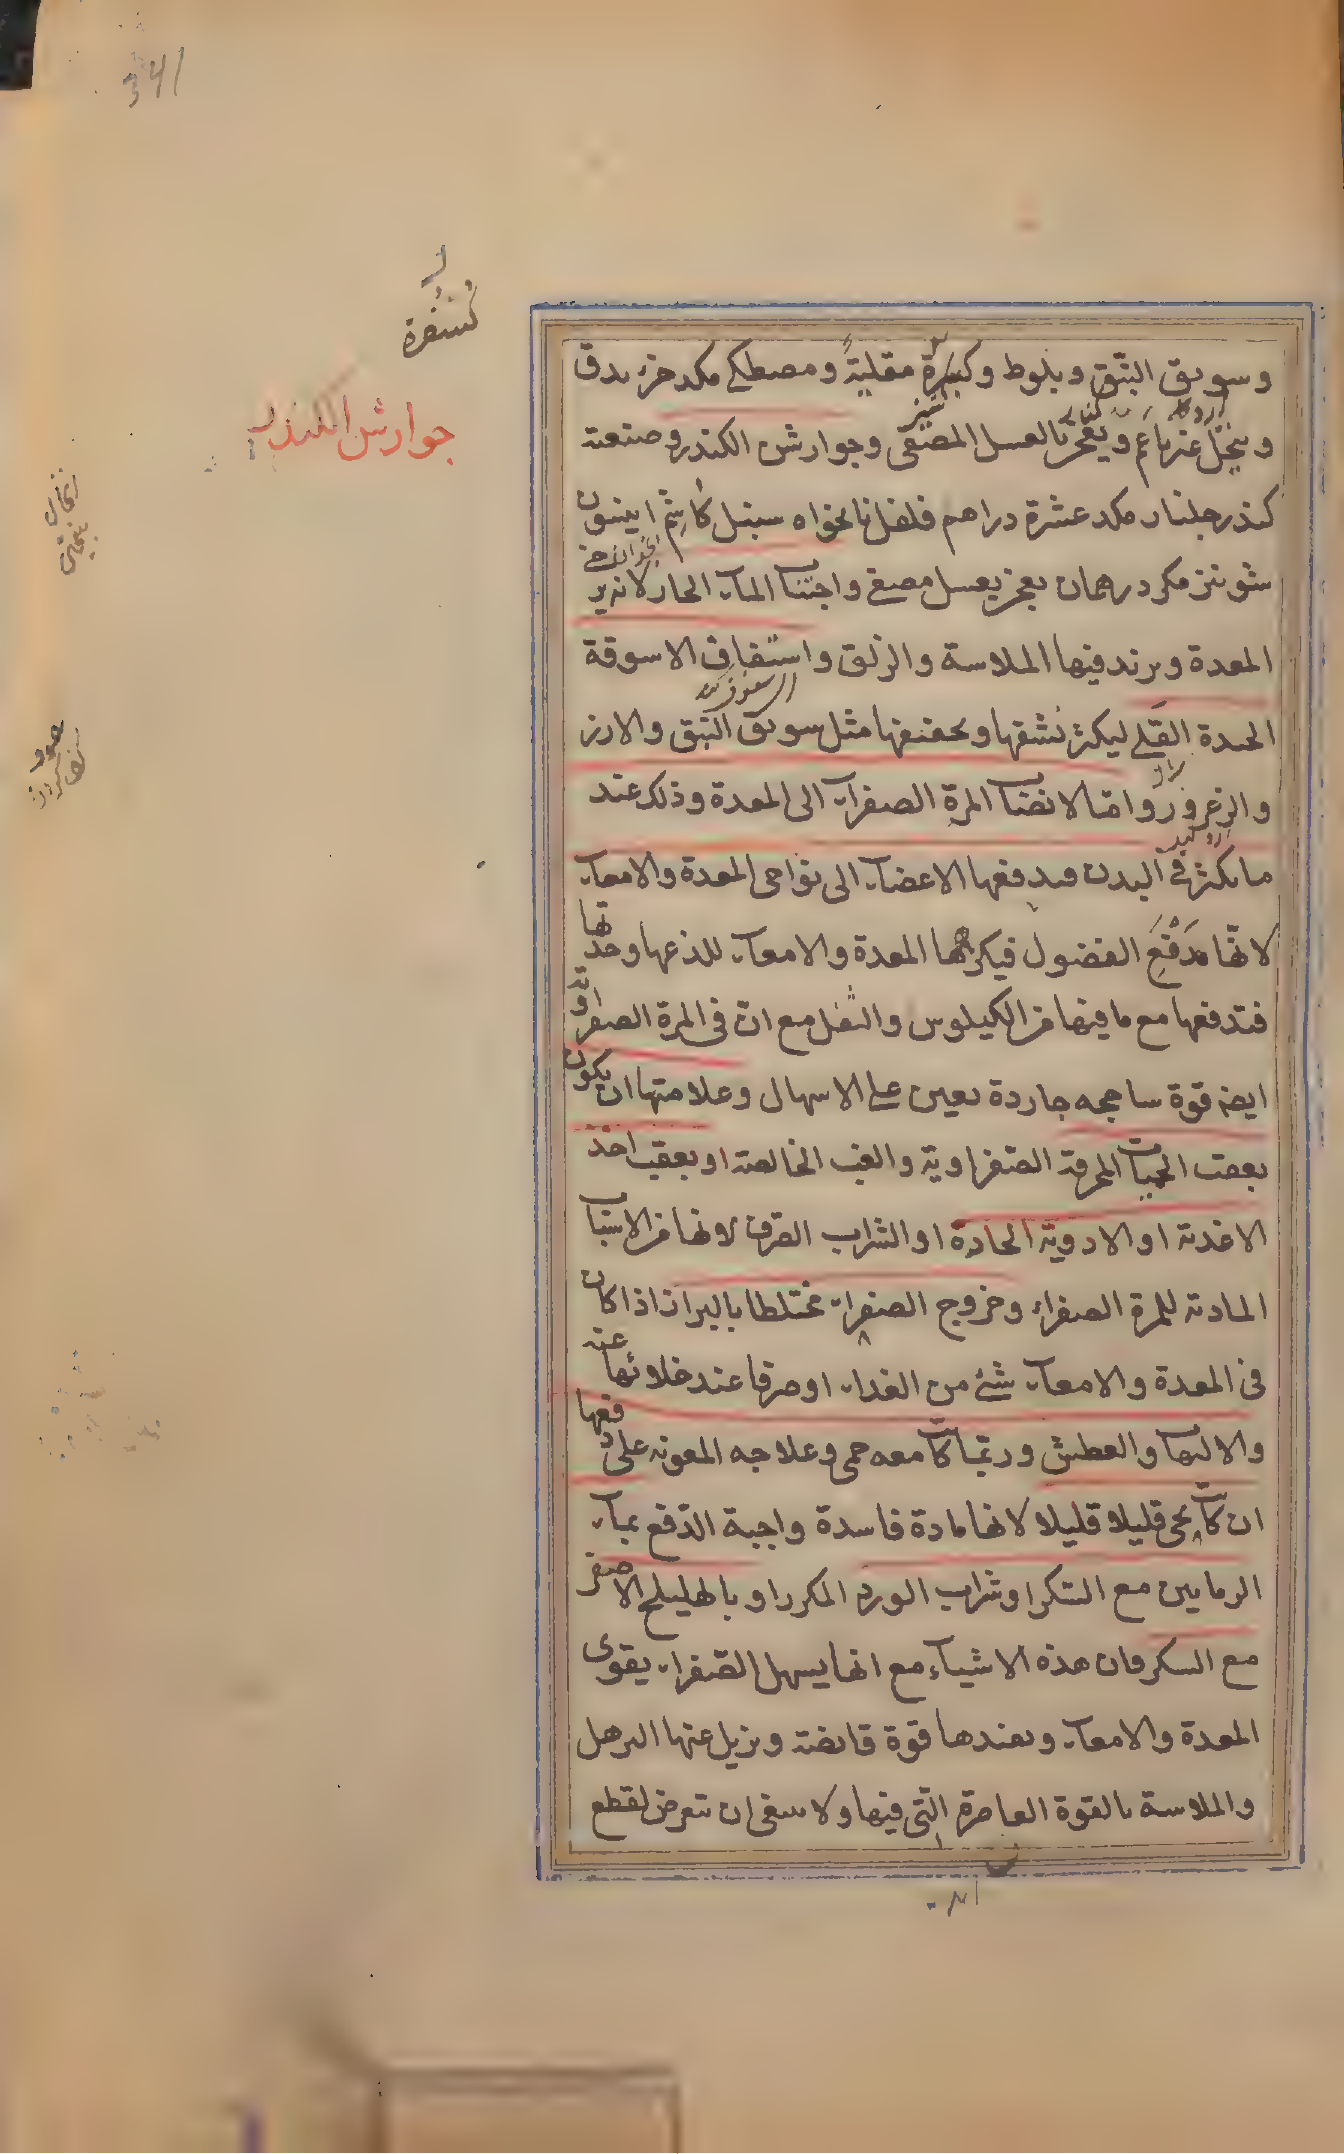 341
كسفرة
جوارش الكندر
وسويق النبق وبلوط وكسفرة مقلية ومصطكي مكد جزء يدق
وينخل غرباعم ويعجن بالعسل المصفى وجوارش الكندر وصنعته
كندر جلنار مكد عشرة دراهم فلفل نانخواه سنبل كاشم انيسون
شونيز مكد درهمان يعجن بعسل مصفى واجتناب الماء الحار لانه ير
المعدة ويزيد فيها الملاسة والزلق واستفاف الاسوقة
السفوف كند
الجيدة القلي ليكثر نشفها وتجفيفها مثل سويق النبق والارز
والزعرور واما لانضباب المرة الصفراء الى المعدة وذلك عند
ما يكثر في البدن فيدفعها الاعضاء الى نواحي المعدة والامعاء
لانها مدفع الفضول فيكرهها المعدة والامعاء للذعها وحدتها
فتدفعها مع ما فيها من الكيلوس والثفل مع ان في المرة الصفراوية
ايضا قوة ساحجه جاردة يعين على الاسهال وعلامتها ان يكون
بعقب الحميات المحرقة الصفراوية والغب الخالصة او بعقب اخذ
الاغذية او الادوية الحادة او الشراب الصرف لانها من الاسباب
المادية للمرة الصفراء وخروج الصفراء مختلطا بالبراز اذا كان
فى المعدة والامعاء شئ من الغذاء او صرفا عند خلائها عنه
والالتهاب والعطش وربما كانت معه حمى وعلاجه المعونة على دفعها
ان كانت يجى قليلا قليلا لانها مادة فاسدة واجبة الدفع بماء
الرمانين مع السكر او شراب الورد المكرر او بالهليلج الاصفر
مع السكر فان هذه الاشياء مع انها يسهل الصفراء يقوى
المعدة والامعاء ويفيدها قوة قابضة ويزيل عنها الترهل
والملاسة بالقوة العاصرة التى فيها ولا ينبغى ان يتعرض لقطع